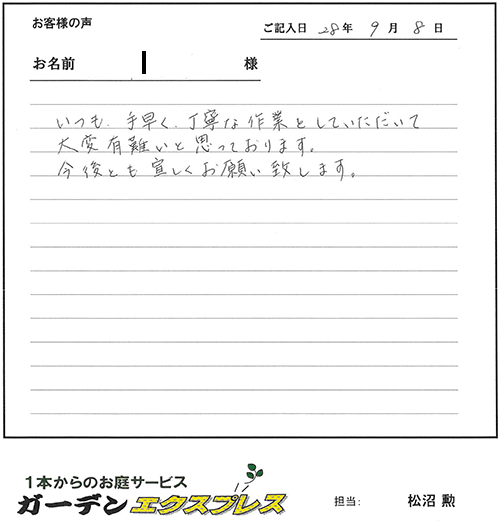 お客様の声
ご記入日 28年 9月 8日
お名前 様
いつも、手早く、丁寧な作業としていただいて
大変有難いと思っております。
今後とも宜しくお願い致します。
1本からのお庭サービス
ガーデンエクスプレス
担当: 松沼 勲